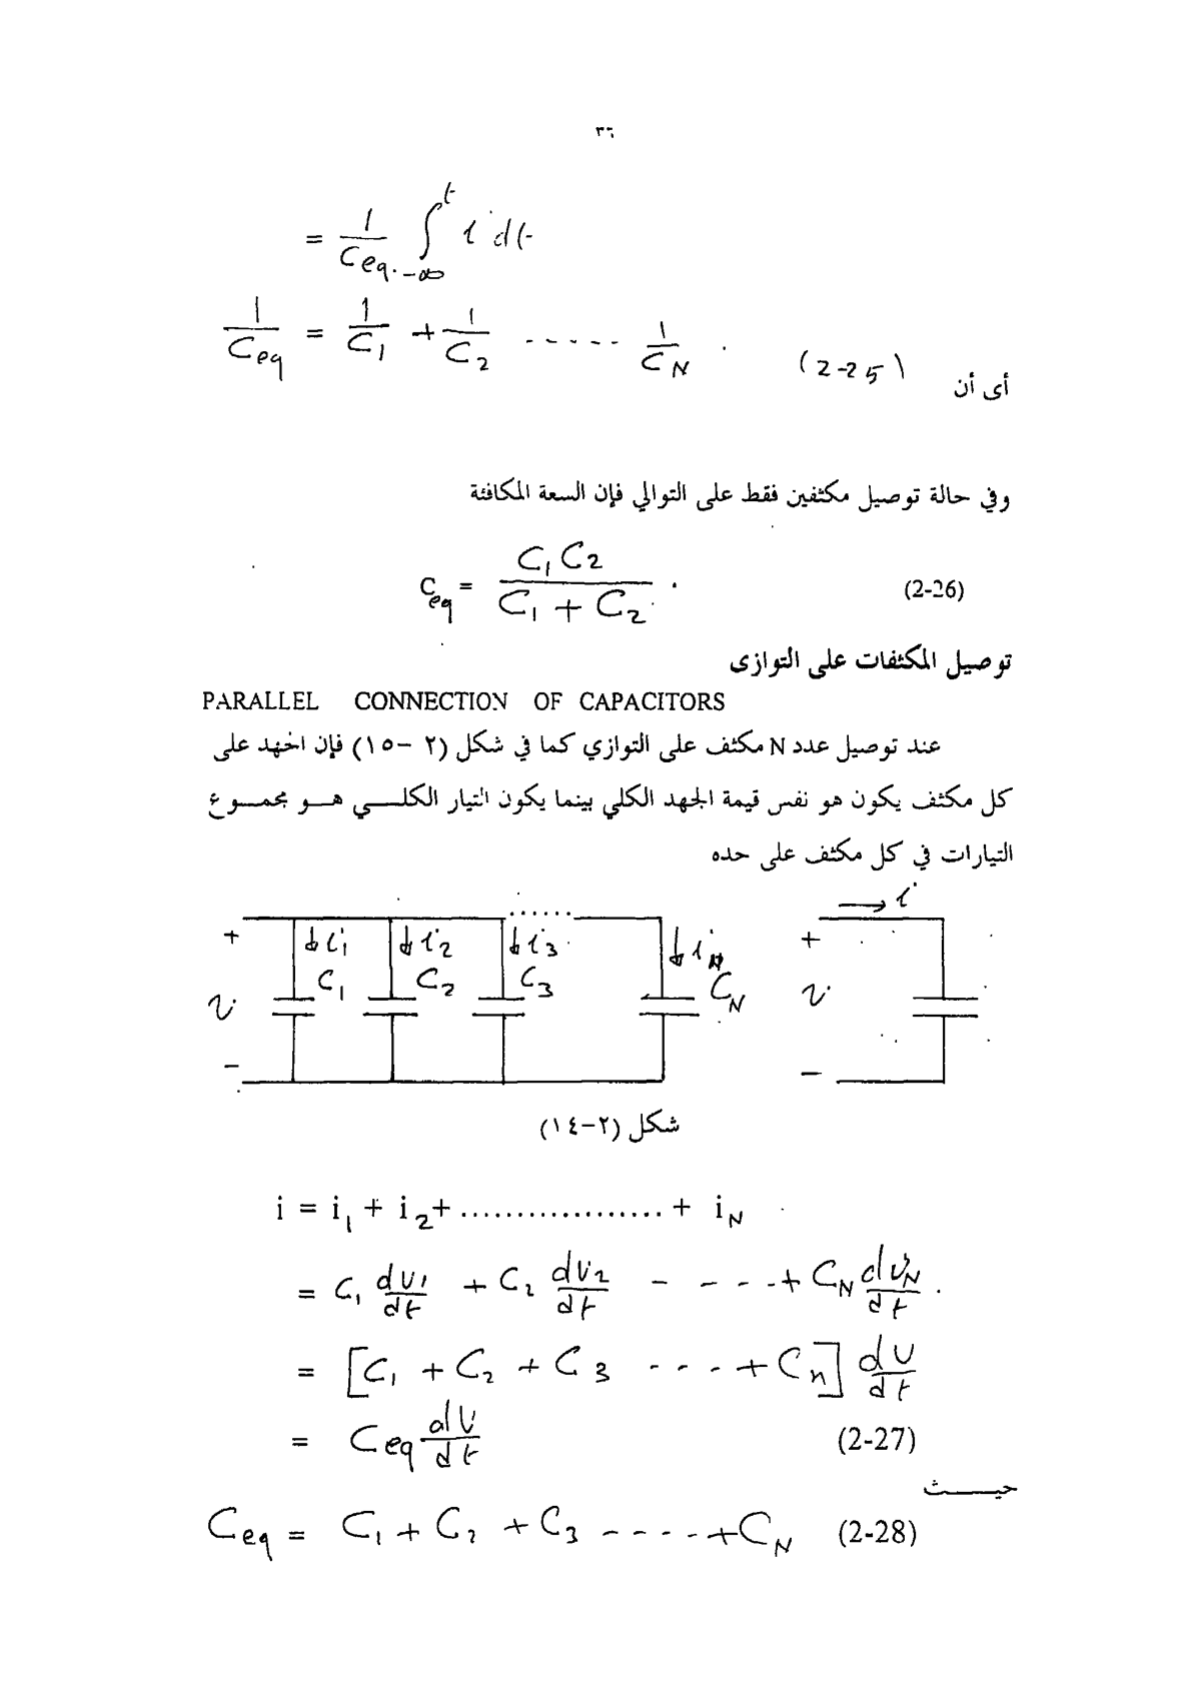 ٣٦
= 1/Ceq. ∫_{-∞}^{t} i dt
1/Ceq = 1/C1 + 1/C2 ..... 1/CN (2-25)
أى أن
وفي حالة توصيل مكثفين فقط على التوالي فإن السعة المكافئة
Ceq = C1 C2 / C1 + C2 (2-26)
توصيل المكثفات على التوازى
PARALLEL CONNECTION OF CAPACITORS
عند توصيل عدد N مكثف على التوازي كما في شكل (٢ –١٥) فإن الجهد على
كل مكثف يكون هو نفس قيمة الجهد الكلي بينما يكون التيار الكلـــي هـــو مجمـــوع
التيارات في كل مكثف على حده
+ i1 i2 ...... i3 iN → i +
v C1 C2 C3 CN v
− −
شكل (٢–١٤)
i = i1 + i2+ .................. + iN
= C1 dv1/dt + C2 dv2/dt - - - - + CN dvN/dt .
= [C1 + C2 + C3 - - - - + Cn] dv/dt
= Ceq dv/dt (2-27)
حيـــــث
Ceq = C1 + C2 + C3 - - - - - + CN (2-28)